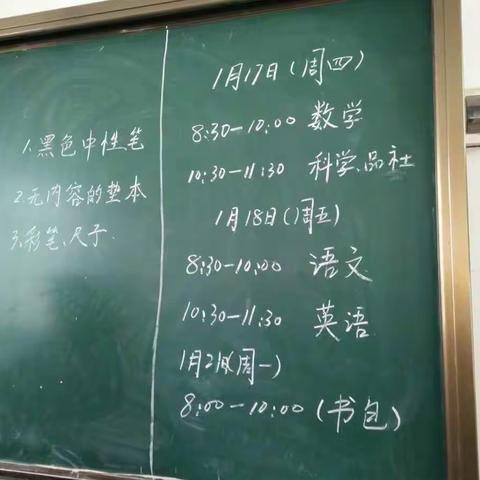 1.黑色中性笔
2.无内容的垫本
3.彩笔、尺子.
1月17日(周四)
8:30-10:00 数学
10:30-11:30 科学、品社
1月18日(周五)
8:30-10:00 语文
10:30-11:30 英语
1月21日(周一)
8:00-10:00(书包)